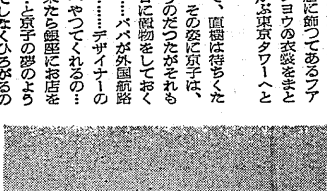 に飾つてあるフア
ヨウの衣裳をまと
ぶ東京タワーへと
、直樹は待ちくた
その姿に京子は、
のだつたがそれも
に置物をしておく
…パパが外国航路
………デザイナーの
やつてくれるの…
たら銀座にお店を
…と京子の夢のよう
てしなくひろがるの